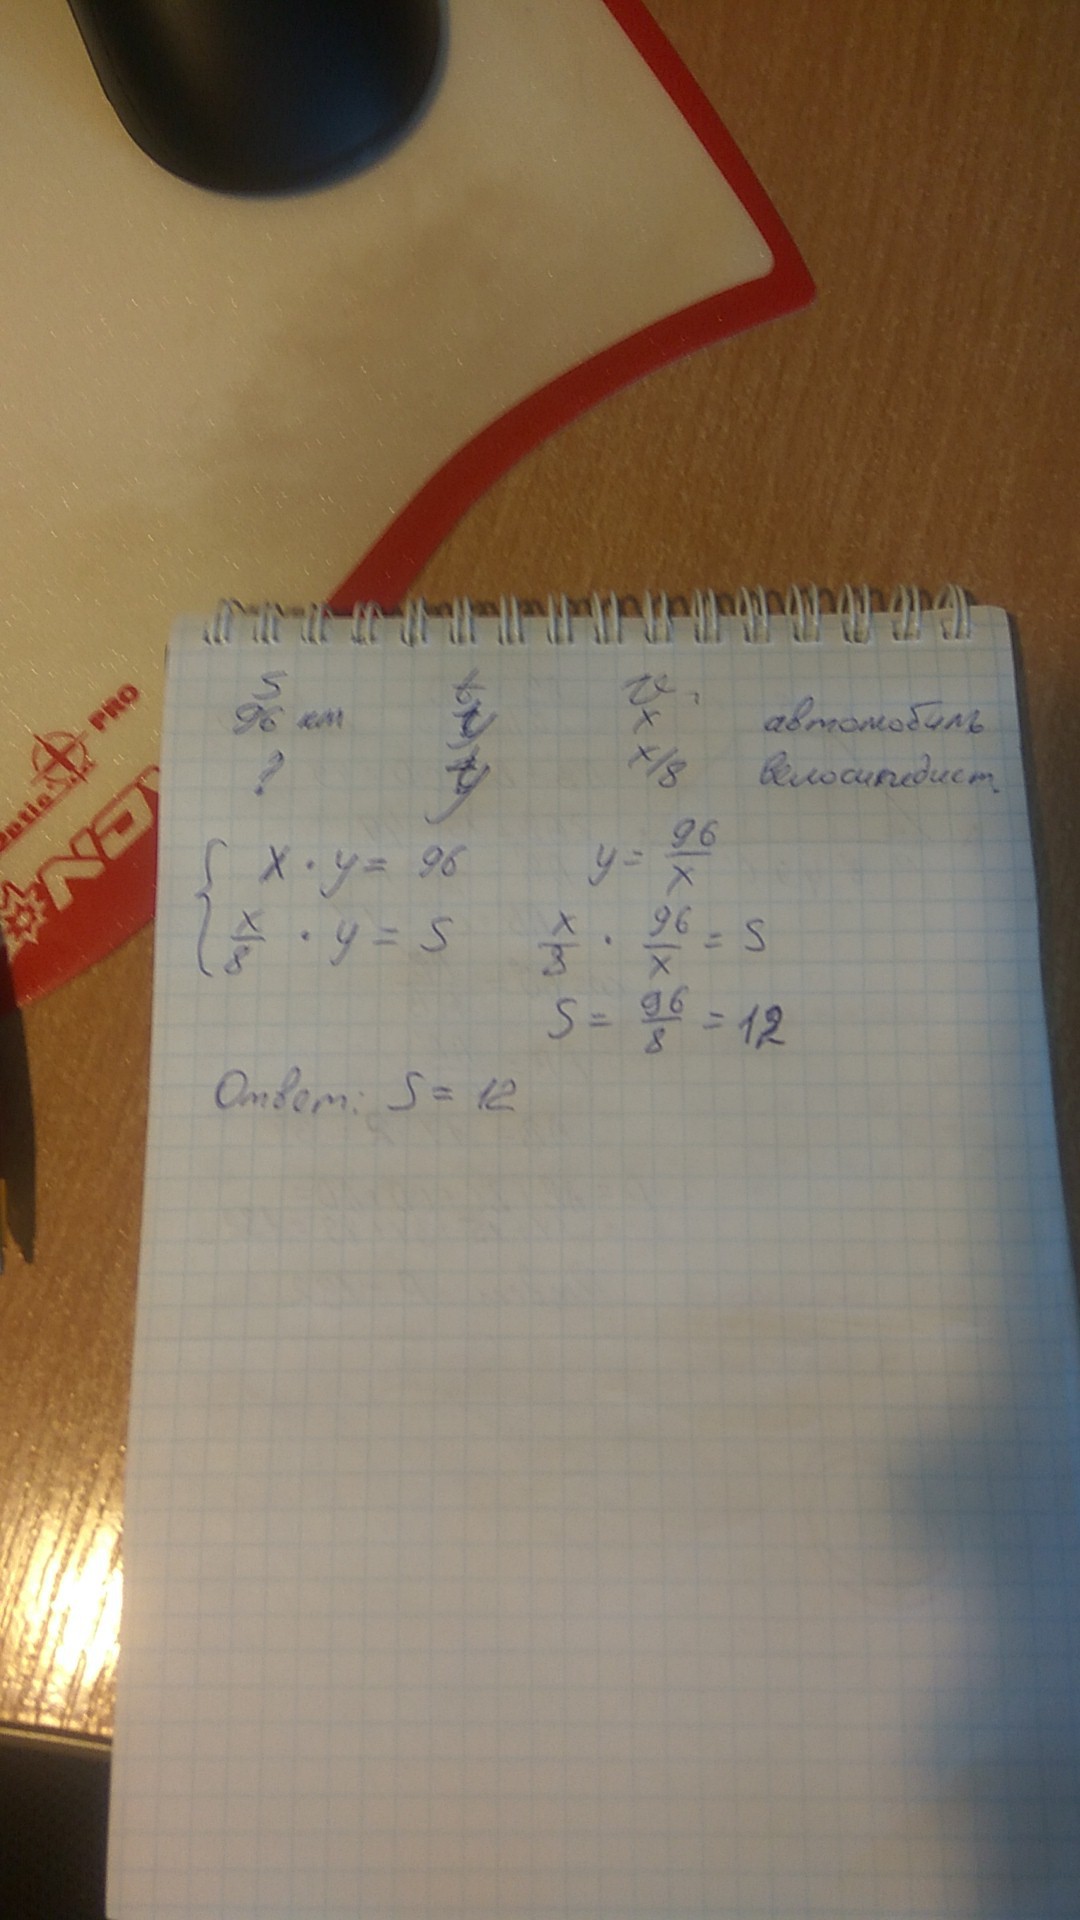 PRO
S t V
96 км y x автомобиль
? y x/8 велосипедист
x · y = 96 y = 96/x
x/8 · y = S x/8 · 96/x = S
S = 96/8 = 12
Ответ: S = 12